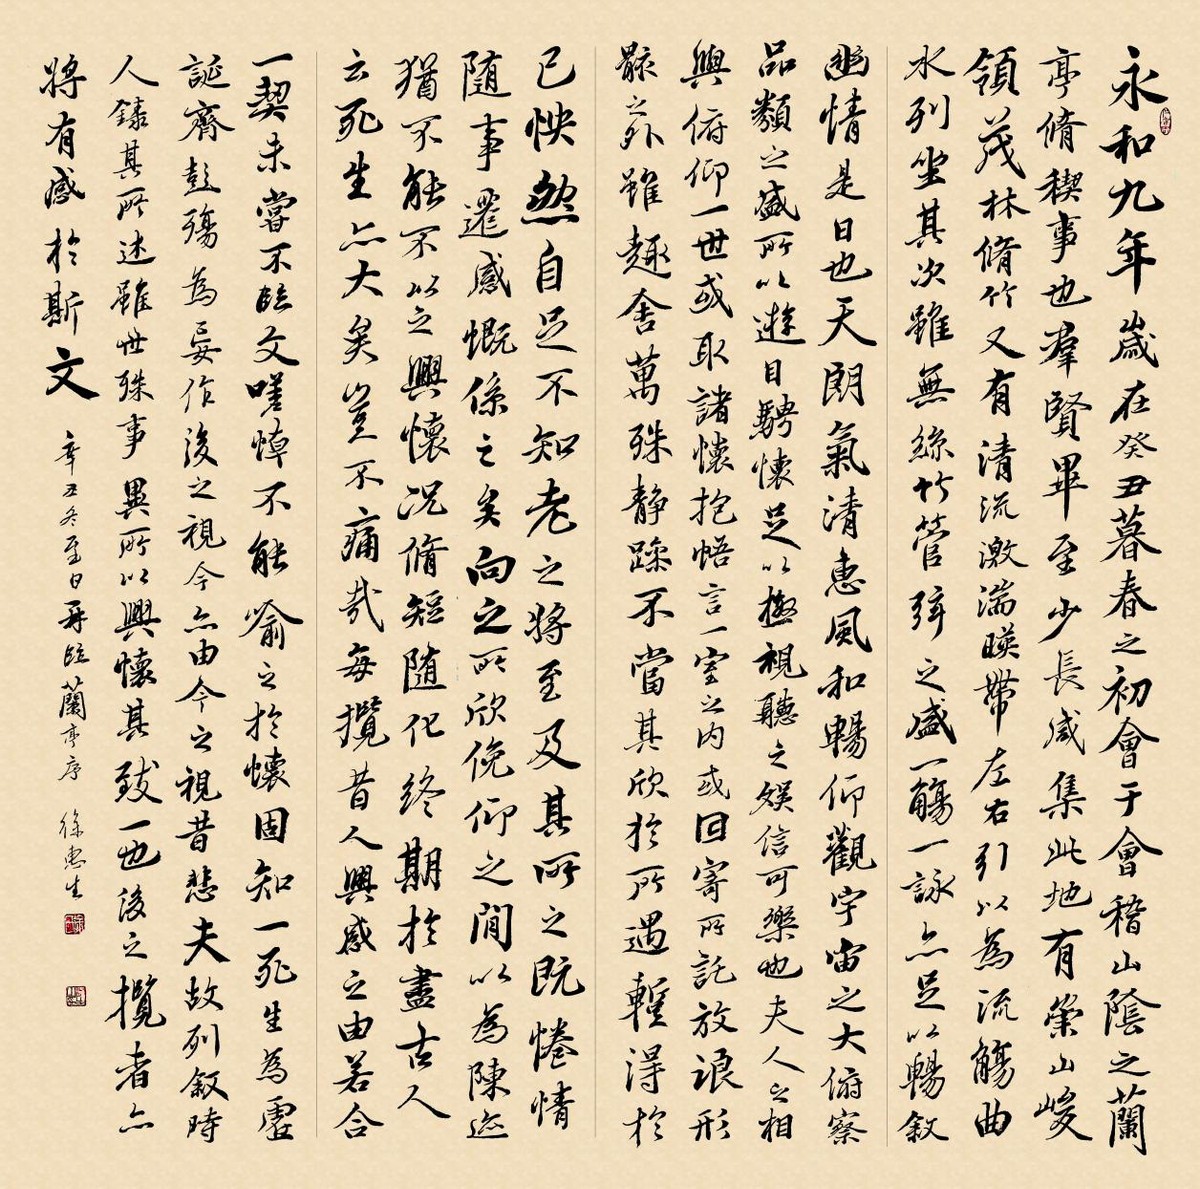 永和九年歲在癸丑暮春之初會于會稽山陰之蘭
亭脩稧事也羣賢畢至少長咸集此地有崇山峻
領茂林脩竹又有清流激湍暎帶左右引以為流觴曲
水列坐其次雖無絲竹管弦之盛一觴一詠亦足以暢敘
幽情是日也天朗氣清惠風和暢仰觀宇宙之大俯察
品類之盛所以遊目騁懷足以極視聽之娛信可樂也夫人之相
與俯仰一世或取諸懷抱悟言一室之內或因寄所託放浪形
骸之外雖趣舍萬殊静躁不當其欣於所遇暫得於
己怏然自足不知老之將至及其所之既惓情
隨事遷感慨係之矣向之所欣俛仰之間以為陳迹
猶不能不以之興懷况脩短隨化終期於盡古人
云死生亦大矣豈不痛哉每攬昔人興感之由若合
一契未嘗不臨文嗟悼不能喻之於懷固知一死生為虛
誕齊彭殤為妄作後之視今亦由今之視昔悲夫故列敘時
人錄其所述雖世殊事異所以興懷其致一也後之攬者亦
將有感於斯文
辛丑冬至日再臨蘭亭序 徐惠生